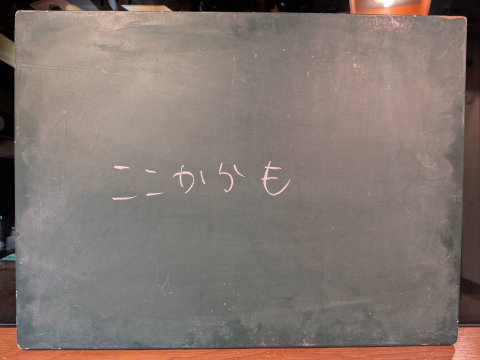 ここからも